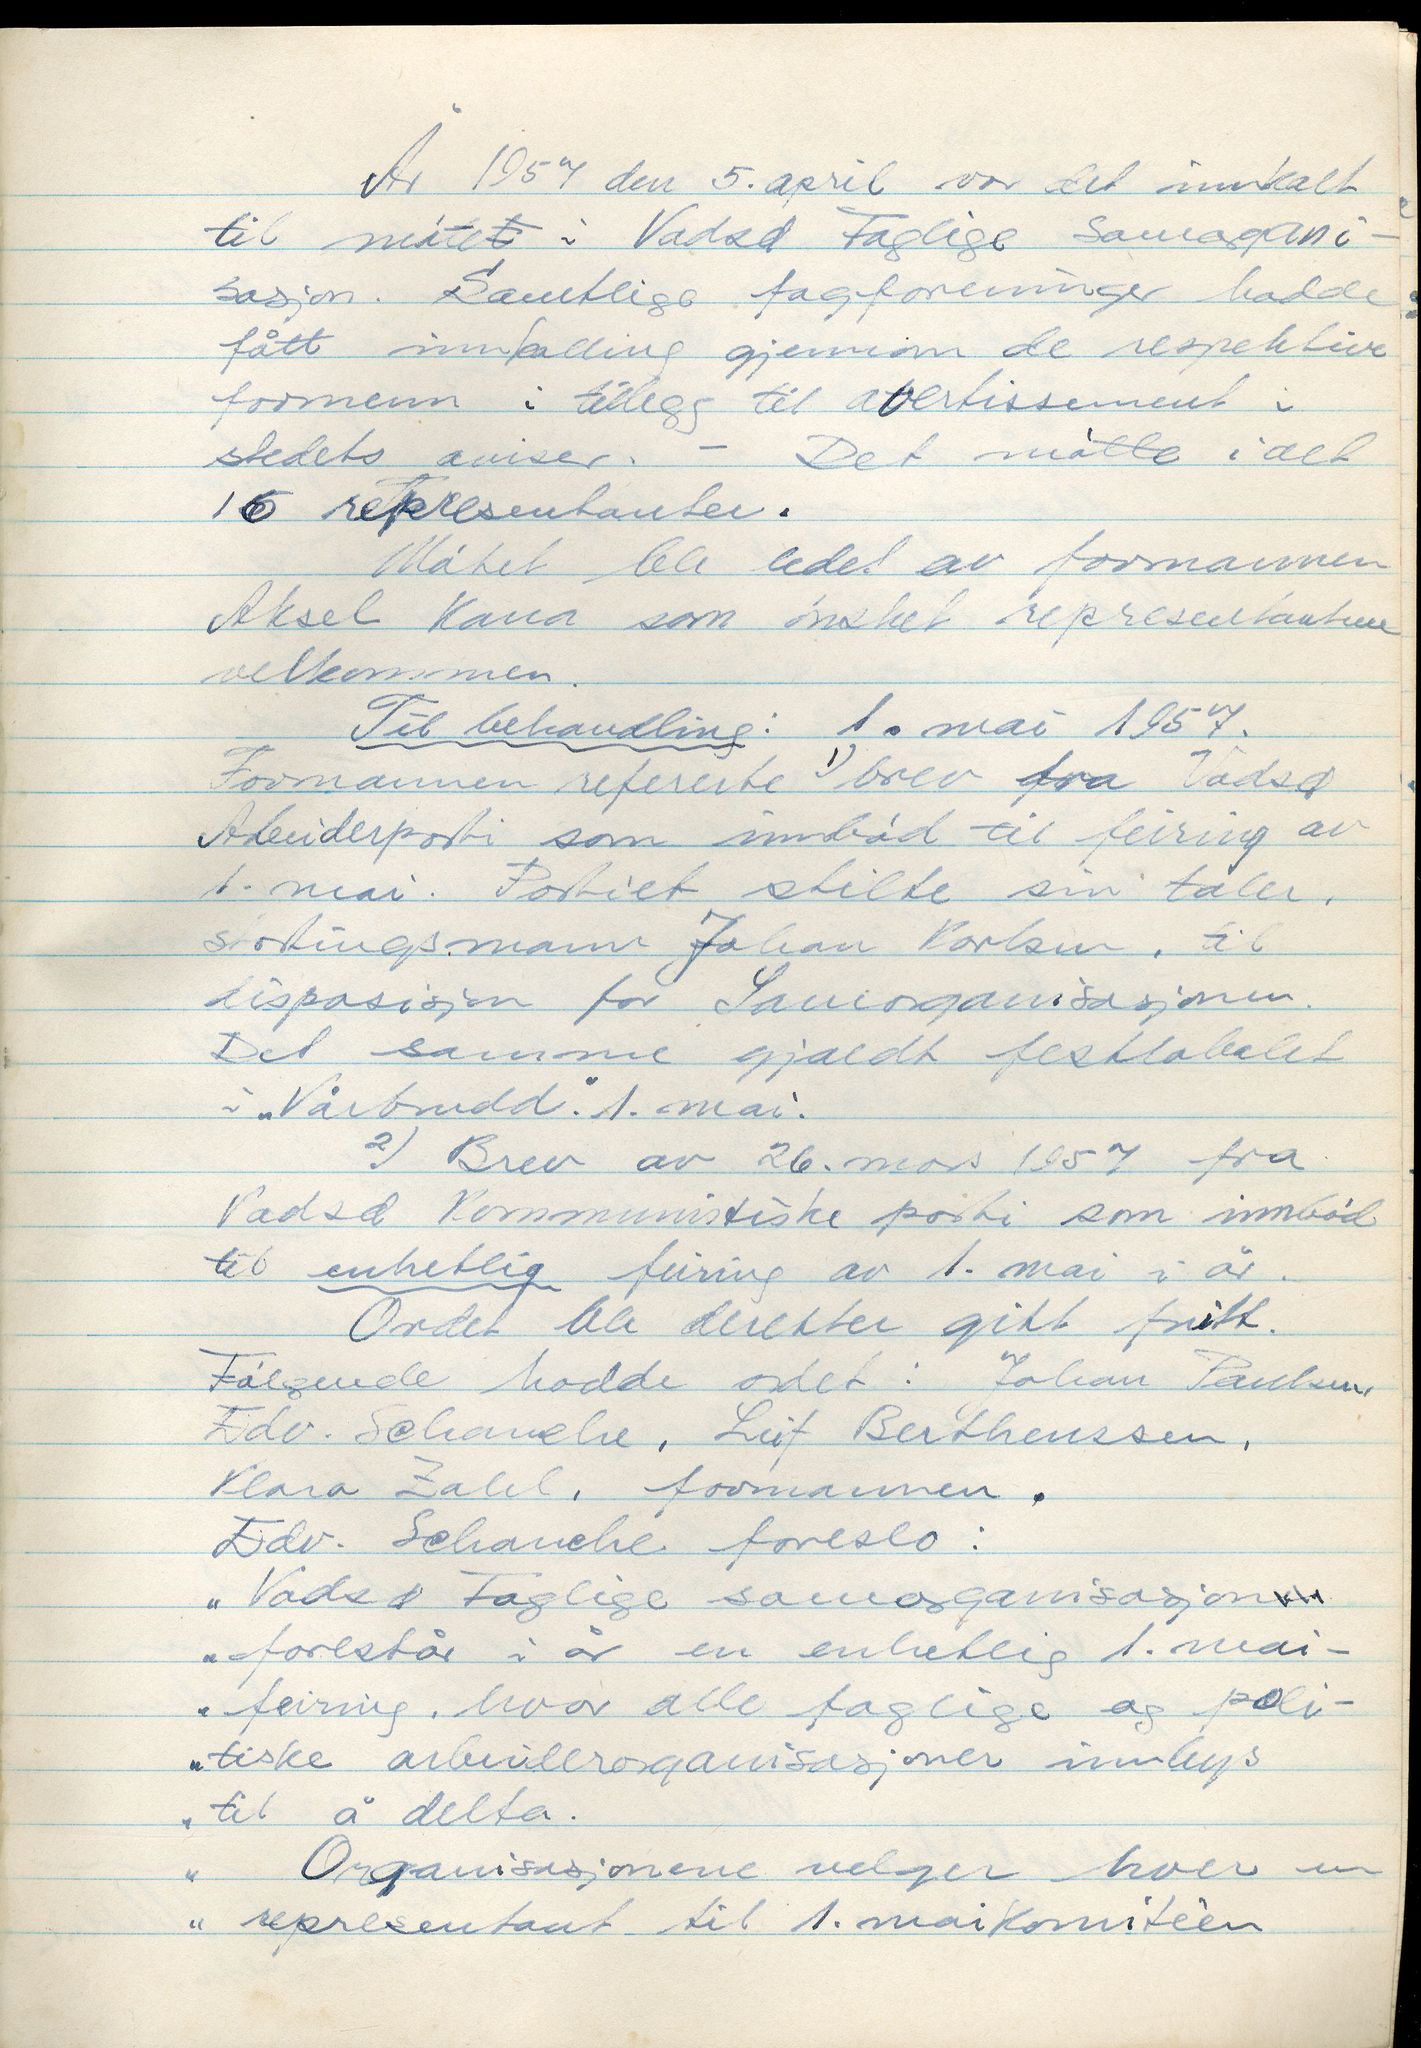 År 1957 den 5. april var det innkalt
til møtet i Vadsø Faglige Samorgani-
sasjon. Samtlige fagforeninger hadde
fått innkalling gjennom de respektive
formenn i tillegg til avertissement i
stedets aviser. - Det møtte i alt
16 representanter.
Møtet ble ledet av formannen
Aksel Kana som ønsket representantene
velkommen.
Til behandling: 1. mai 1957.
Formannen refererte 1) brev fra Vadsø
Arbeiderparti som innbød til feiring av
1. mai. Partiet stilte sin taler,
stortingsmann Johan Karlsen, til
disposisjon for Samorganisasjonen.
Det samme gjaldt festlokalet
i „Vårbrudd" 1. mai.
2) Brev av 26. mars 1957 fra
Vadsø Kommunistiske parti som innbød
til enhetlig feiring av 1. mai i år.
Ordet ble deretter gitt fritt.
Følgende hadde ordet: Johan Paulsen,
Edv. Schanche, Leif Berthenssen,
Klara Zahl, formannen.
Edv. Schanche foreslo:
„Vadsø Faglige samorganisasjon
„forestår i år en enhetlig 1. mai-
„feiring, hvor alle faglige og poli-
„tiske arbeiderorganisasjoner innbys
„til å delta.
„ Organisasjonene velger hver en
„ representant til 1. maikomitéen